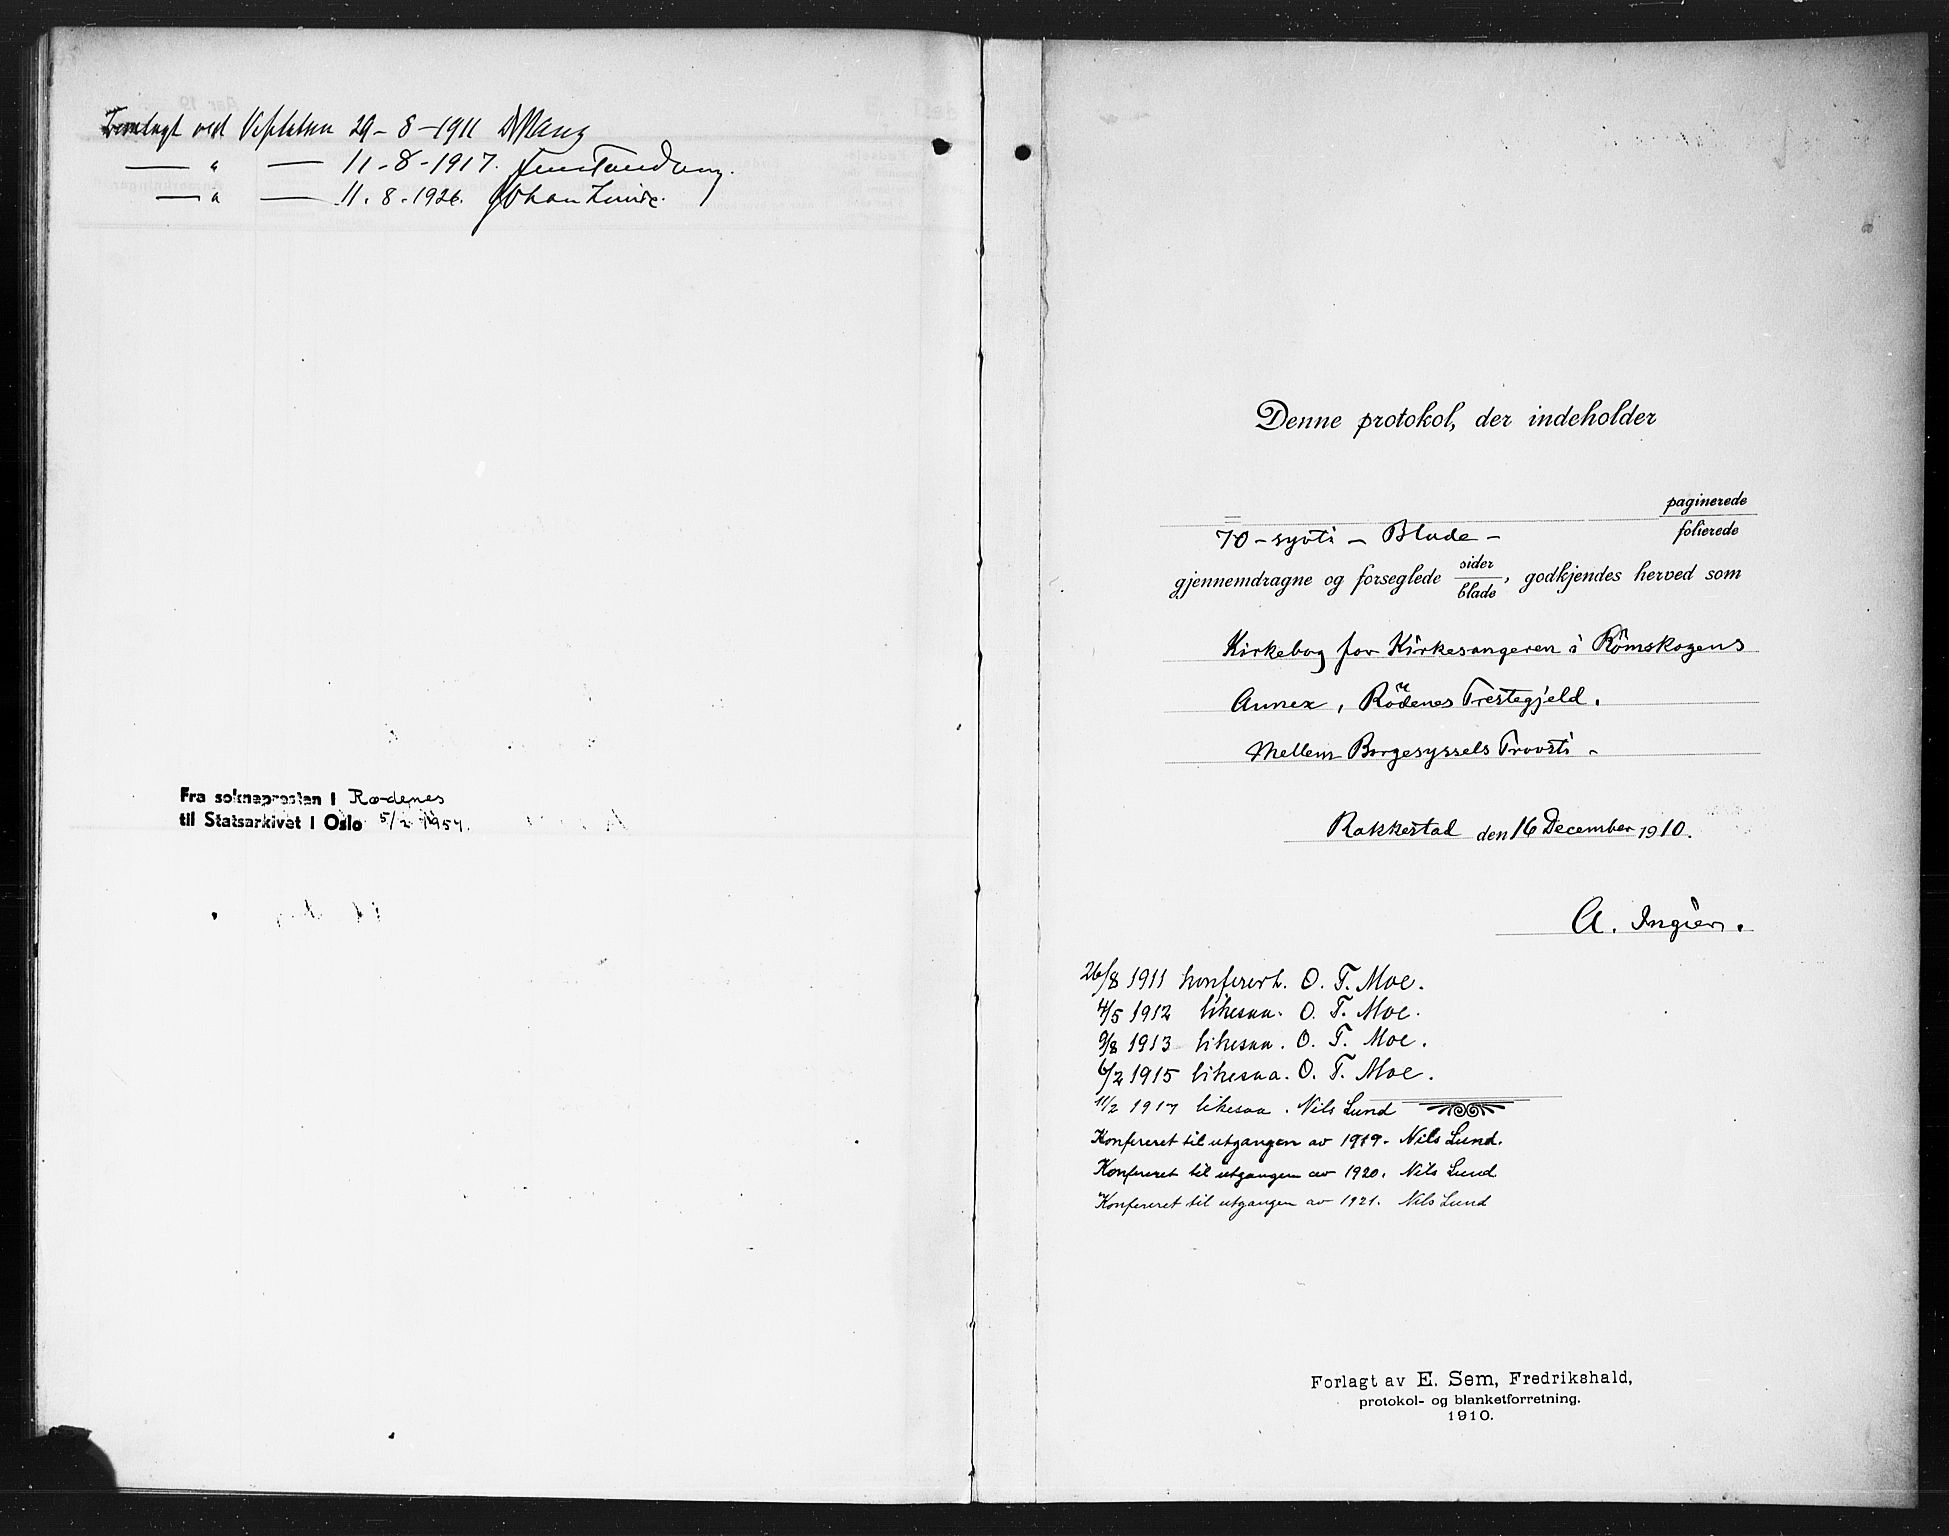 Fremlagt ved Visitatsen 29-8-1911
— " — 11-8-1917.
— " — 11.8.1926. Johan Lunde.
Fra soknepresten i Rødenes
til Statsarkivet i Oslo 5/2 1954.
Denne protokol, der indeholder
paginerede
70 - sytti - Blade -
folierede
gjennemdragne og forseglede sider/blade, godkjendes herved som
Kirkebog for Kirkesangeren i Römskogens
Annex, Rödenes Prestegjeld.
Mellem Borgesyssels Provsti -
Rakkestad den 16 December 1910.
A. Ingier.
26/8 1911 konferert. O. T. Moe.
4/5 1912 likesaa. O. T. Moe.
9/8 1913 likesaa. O. T. Moe.
6/2 1915 likesaa. O. T. Moe.
11/2 1917 likesaa. Nils Lund
Konfereret til utgangen av 1919. Nils Lund.
Konfereret til utgangen av 1920. Nils Lund
Konfereret til utgangen av 1921. Nils Lund
Forlagt av E. Sem, Fredrikshald,
protokol- og blanketforretning.
1910.